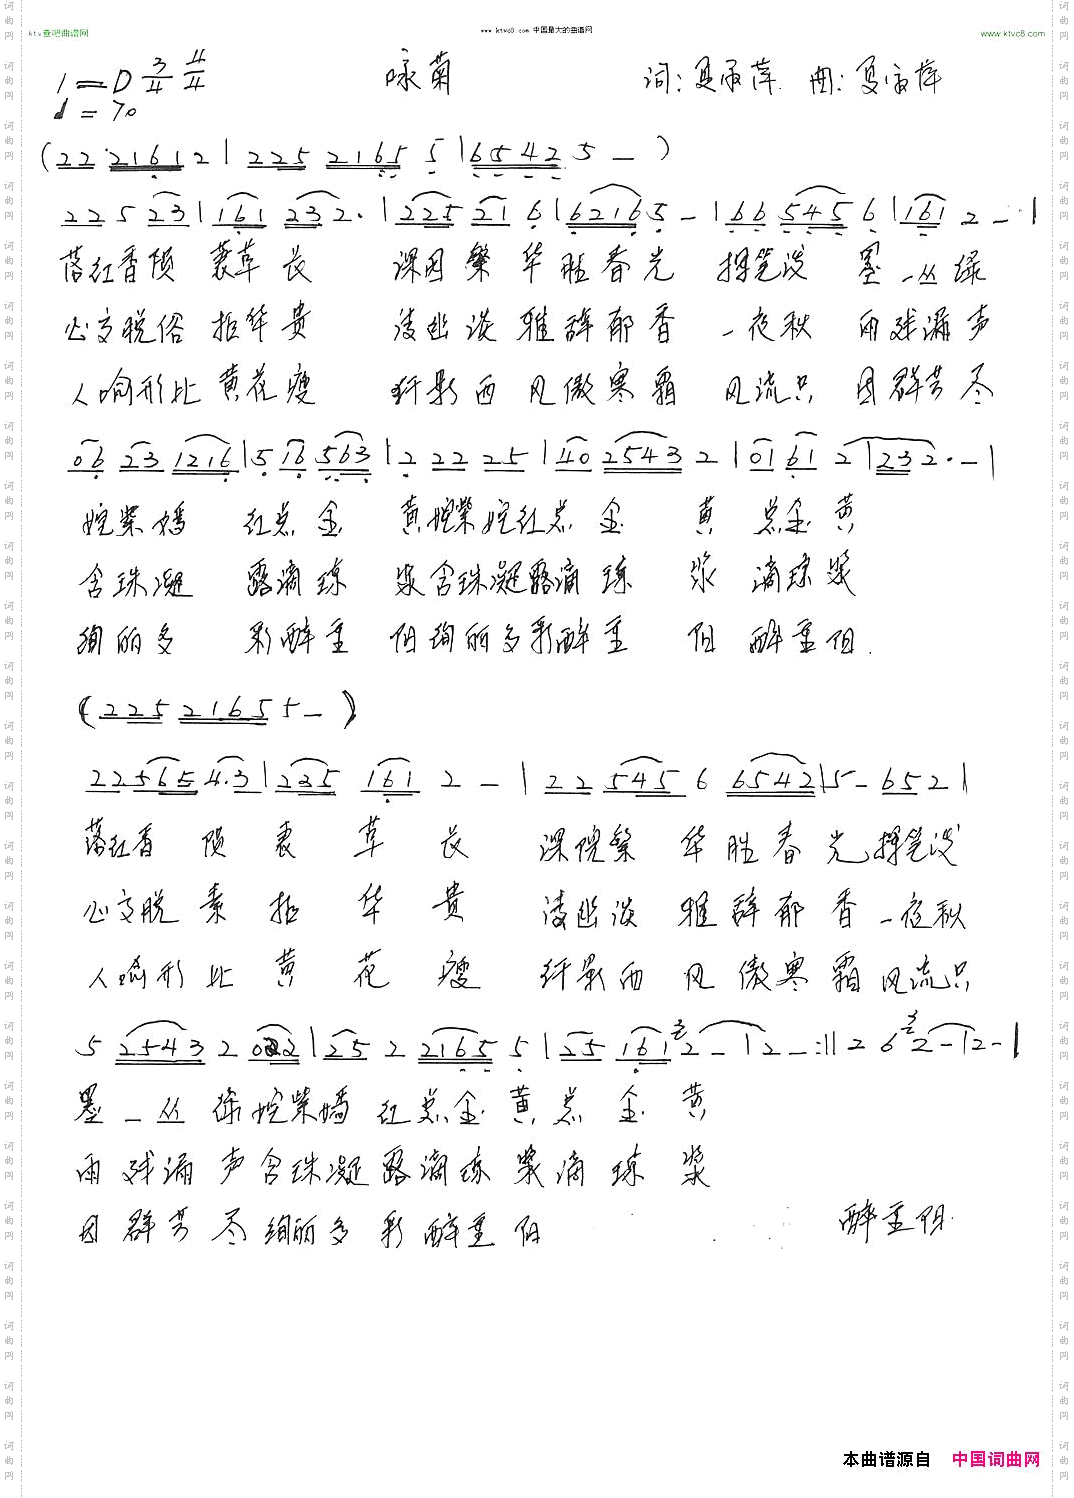 ktv查吧曲谱网 www.ktvc8.com 中国最大的曲谱网 www.ktvc8.com
1=D 3/4 4/4 咏菊 词:夏 萍 曲:夏 萍
♩=70
(22 21612|225 2165 5|65425-)
225 23|161 232.|225 21 6|62165-|66 545 6|161 2--|
落红香陨 衰草长 深园繁华胜春光 挥笔淡墨一丛绿
心文脱俗拒华贵 凌幽淡雅辞郁香 一夜秋雨残漏声
人响形比黄花瘦 纤影西风傲寒霜 风流只因群芳尽
06 23 1216|5 16 563|2 22 25|40 2543 2|01 61 2|232.-|
姹紫嫣 红点金 黄姹紫嫣红点金 黄 点金黄
含珠凝 露滴琼 浆含珠凝露滴琼 浆 滴琼浆
绚丽多 彩醉重 阳绚丽多彩醉重 阳 醉重阳.
(225 2165 5-)
22565 4.3|235 161 2-|22 545 6 6542|5-652|
落红香 陨 衰 草 长 深院繁 华胜春光挥笔淡
心文脱 素 拒 华 贵 凌幽淡 雅辞郁香一夜秋
人响形 比 黄 花 瘦 纤影西 风傲寒霜风流只
5 2543 2 022|25 2 2165 5|25 161 2-|2-:||2 6 2-|2-|
墨一丛 绿姹紫嫣 红点金黄点 金 黄
雨残漏 声含珠凝 露滴琼浆滴 琼 浆
因群芳 尽绚丽多 彩醉重阳 醉重阳.
本曲谱源自 中国词曲网